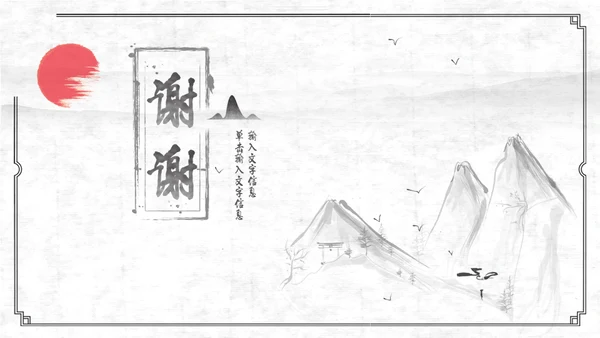 谢谢
输入文字信息
单击输入文字信息